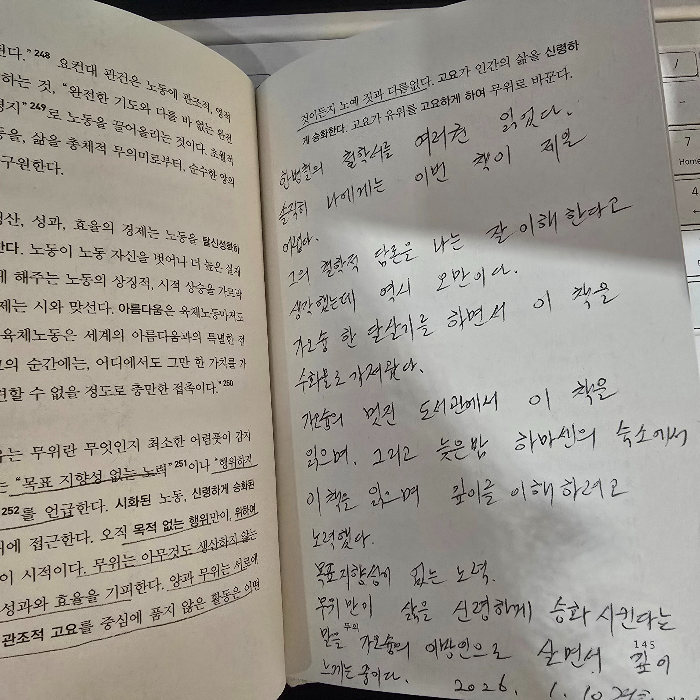 된다."248 요컨대 관건은 노동에 관조적, 영적
하는 것, "완전한 기도와 다를 바 없는 완전
경지"249로 노동을 끌어올리는 것이다. 초월적
동을, 삶을 총체적 무의미로부터, 순수한 양의
구원한다.
생산, 성과, 효율의 경제는 노동을 탈신성화하
한다. 노동이 노동 자신을 벗어나 더 높은 실재
게 해주는 노동의 상징적, 시적 상승을 가로막
제는 시와 맞선다. 아름다움은 육체노동마저도
육체노동은 세계의 아름다움과의 특별한 접
의 순간에는, 어디에서도 그만 한 가치를 가
견할 수 없을 정도로 충만한 접촉이다."250
유는 무위란 무엇인지 최소한 어렴풋이 감지
는 "목표 지향성 없는 노력"251이나 "행위하지
252를 언급한다. 시화된 노동, 신령하게 승화된
위에 접근한다. 오직 목적 없는 행위만이, 위하여
이 시적이다. 무위는 아무것도 생산하지 않는
성과와 효율을 기피한다. 양과 무위는 서로에
관조적 고요를 중심에 품지 않은 활동은 어떤
것이든지 노예 짓과 다름없다. 고요가 인간의 삶을 신령하
게 승화한다. 고요가 유위를 고요하게 하여 무위로 바꾼다.
한병철의 철학서를 여러권 읽었다.
솔직히 나에게는 이번 책이 제일
어렵다.
그의 철학적 담론을 나는 잘 이해한다고
생각했는데 역시 오만이다.
가오슝 한 달살기를 하면서 이 책을
수화물로 가져왔다.
가오슝의 멋진 도서관에서 이 책을
읽으며, 그리고 늦은밤 하마센의 숙소에서
이 책을 읽으며 깊이를 이해하려고
노력했다.
목표지향성이 없는 노력.
무위만이 삶을 신령하게 승화시킨다는
말을 가오슝의 이방인으로 살면서 깊이
느끼는 중이다. 2026. 1. 10
145
7
Home
4